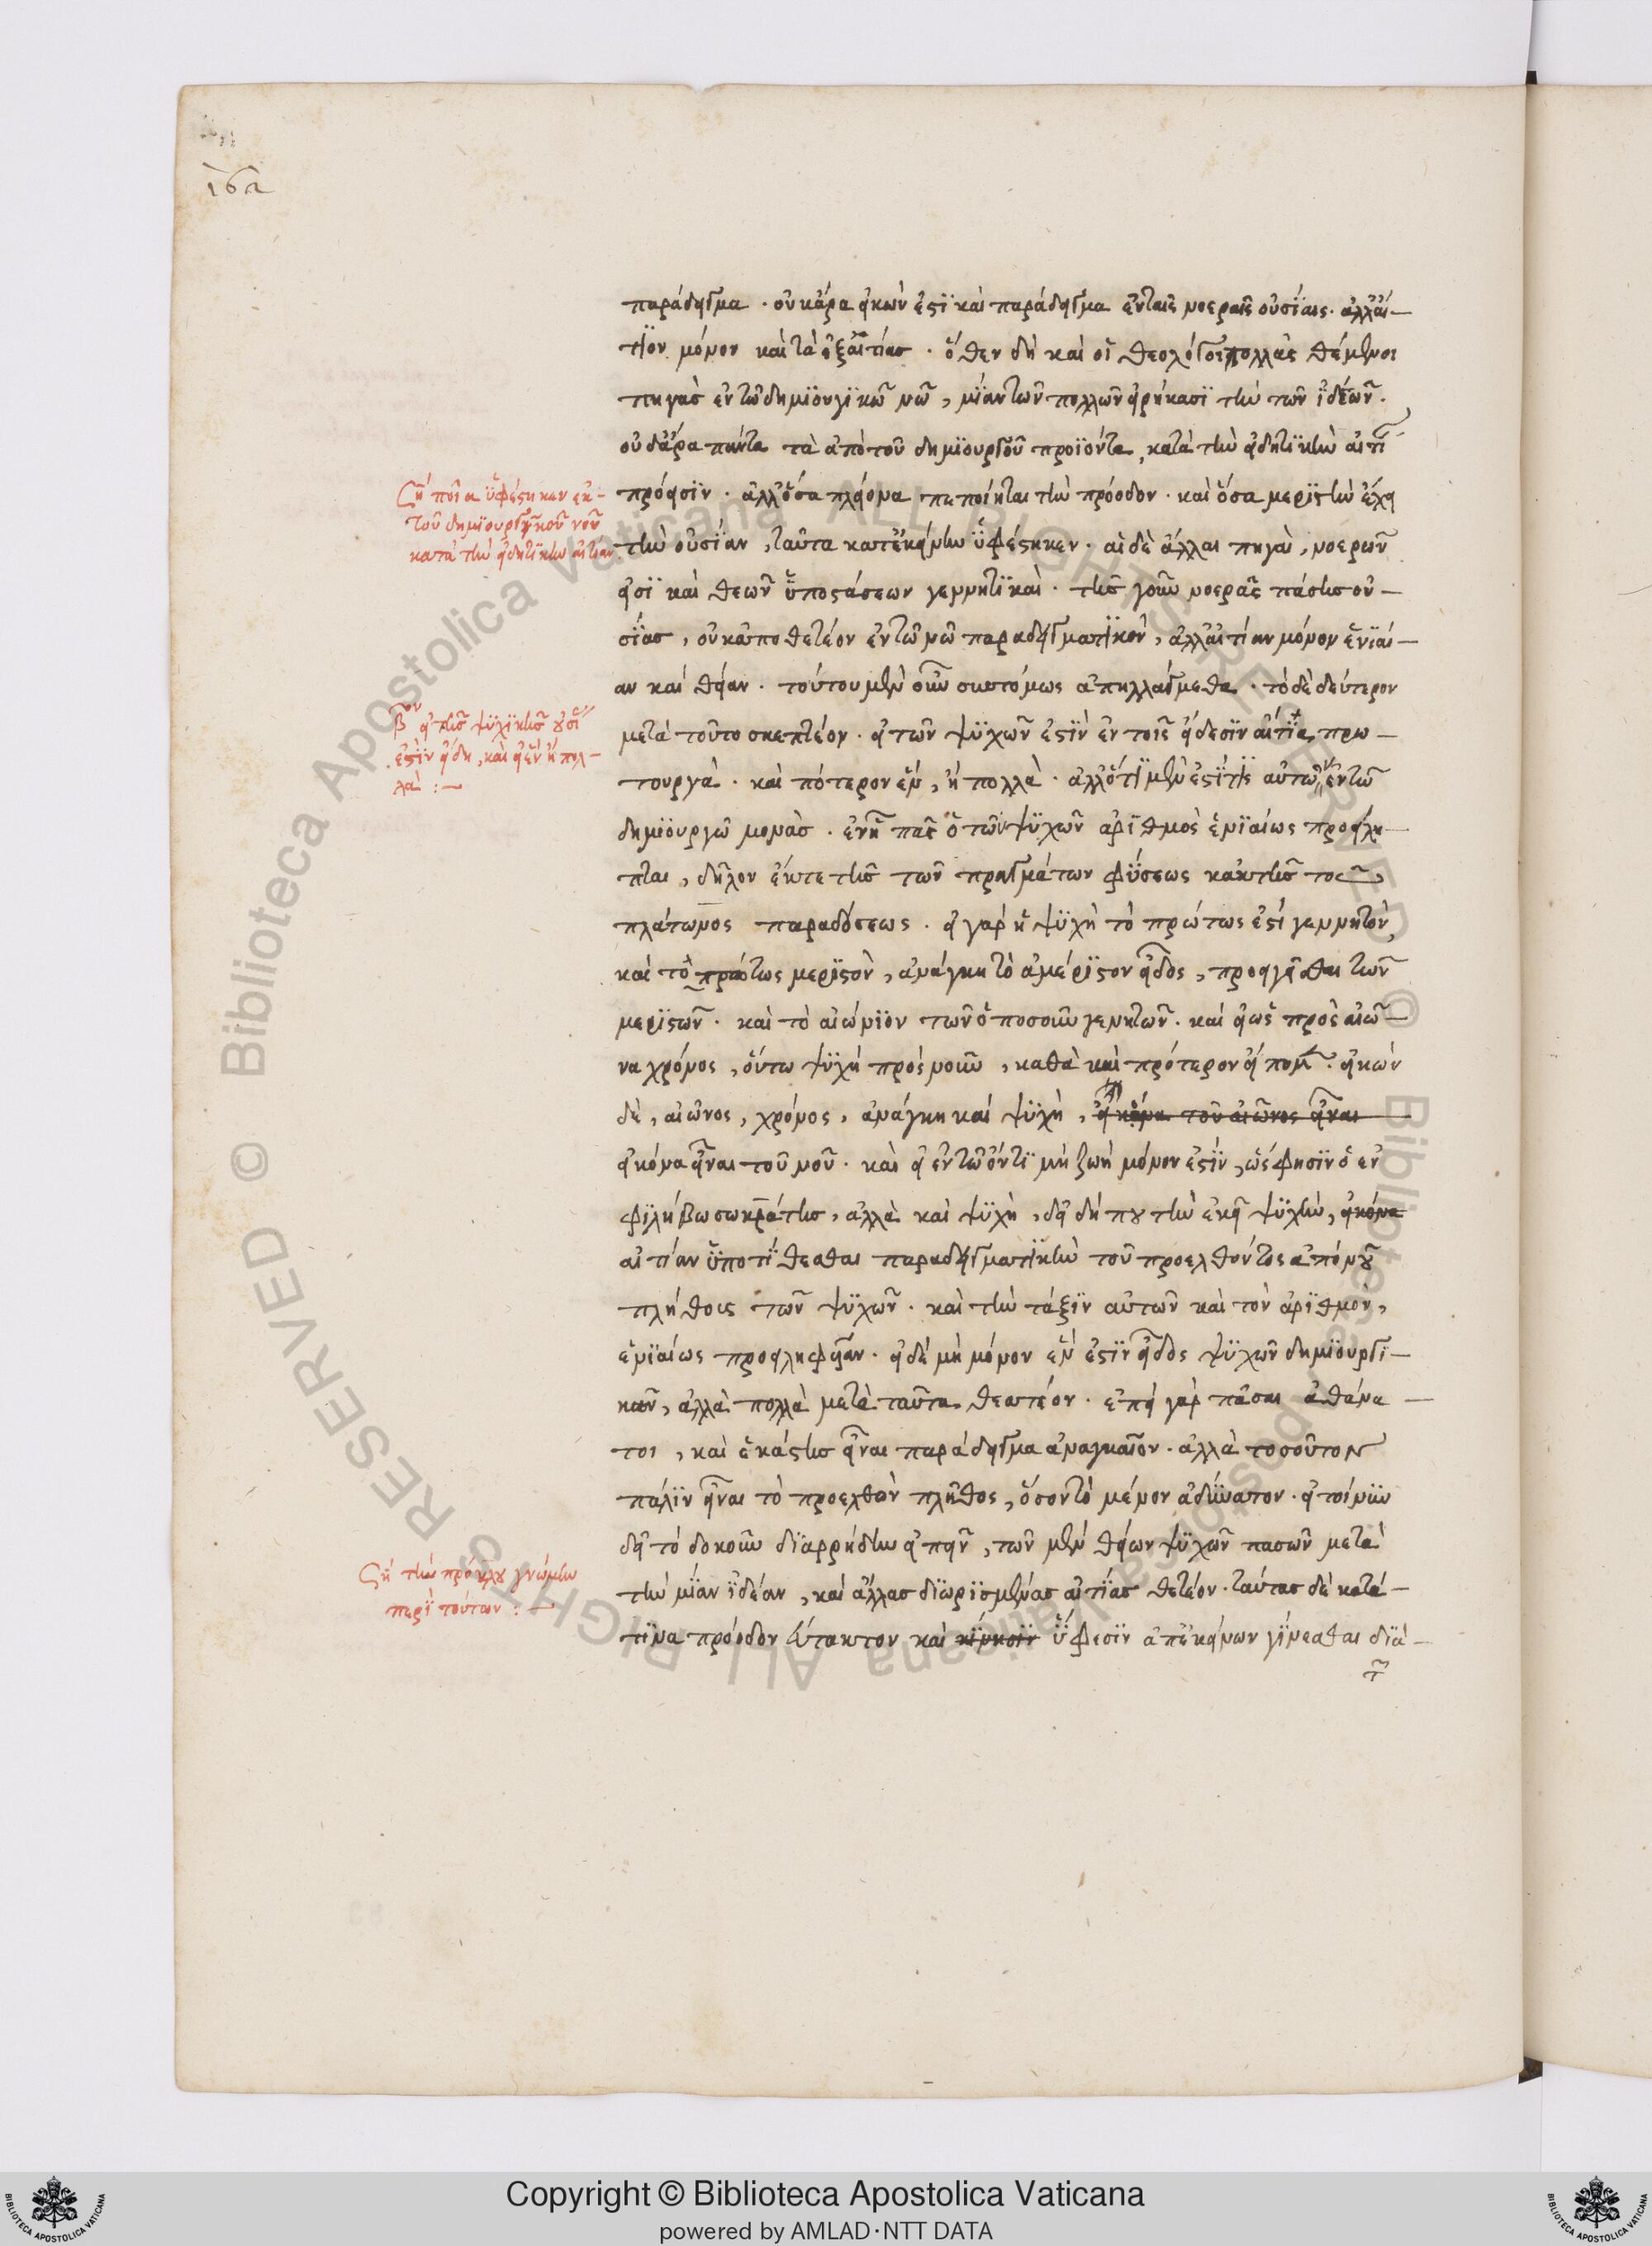 παράδειγμα. οὐκ ἄρα εἰκών ἐστι καὶ παράδειγμα ἐν ταῖς νοεραῖς οὐσίαις. ἀλλ' αἴ-
τιον μόνον καὶ τὰ ἐξ αἰτίας. ὅθεν δὴ καὶ οἱ θεολόγοι πολλὰς θέμενοι
πηγὰς ἐν τῷ δημιουργικῷ νῷ, μίαν τῶν πολλῶν εἰρήκασι τὴν τῶν ἰδεῶν.
οὐδ' ἄρα πάντα τὰ ἀπὸ τοῦ δημιουργοῦ προϊόντα, κατὰ τὴν εἰδητικὴν αἰτί
πρόεισιν. ἀλλ' ὅσα πεποίηται τὴν πρόοδον. καὶ ὅσα μεριστὴν ἔχει
τὴν οὐσίαν, ταῦτα κατ' ἐκείνην ὑφέστηκεν. αἱ δὲ ἄλλαι πηγαὶ, νοερῶν
εἰσὶ καὶ θεῶν ὑποστάσεων γεννητικαὶ. τῆς γοῦν νοερᾶς πάσης οὐ-
σίας, οὐκ ἀποθετέον ἐν τῷ νῷ παραδειγματικὸν, ἀλλ' αἰτίαν μόνον ἑνιαί-
αν καὶ θείαν. τούτου μὲν οὖν συντόμως ἀπηλλάγμεθα. τὸ δὲ δεύτερον
μετὰ τοῦτο σκεπτέον. εἰ τῶν ψυχῶν ἐστὶν ἐν τοῖς εἴδεσιν αἰτία πρω-
τουργὰ. καὶ πότερον ἕν, ἢ πολλὰ. ἀλλ' ὅτι μὲν ἐστί τις αὐτῶν ἐν τῷ
δημιουργῷ μονὰς. ἐν ᾗ πᾶς ὁ τῶν ψυχῶν ἀριθμὸς ἑνιαίως προείλη-
πται, δῆλον ἔκ τε τῆς τῶν πραγμάτων φύσεως κἀκ τῆς τοῦ
πλάτωνος παραδόσεως. εἰ γὰρ ἡ ψυχὴ τὸ πρώτως ἐστί γεννητὸν,
καὶ τὸ πρώτως μεριστὸν, ἀνάγκη τὸ ἀμέριστον εἶδος, προηγεῖσθαι τῶν
μεριστῶν. καὶ τὸ αἰώνιον τῶν ὁποσοῦν γενητῶν. καὶ εἰ ὡς πρὸς αἰῶ-
να χρόνος, οὕτω ψυχὴ πρὸς νοῦν, καθὰ καὶ πρότερον εἴπομεν. εἰκὼν
δὲ, αἰῶνος, χρόνος, ἀνάγκη καὶ ψυχὴ, εἰκόνα τοῦ αἰῶνος εἶναι
εἰκόνα εἶναι τοῦ νοῦ. καὶ εἰ ἐν τῷ ὄντι μὴ ζωὴ μόνον ἐστίν, ὥς φησιν ὁ ἐν
φιλήβω σωκράτης, ἀλλὰ καὶ ψυχὴ, δεῖ δήπου τὴν ἐκεῖ ψυχὴν, εἰκόνα
αἰτίαν ὑποτίθεσθαι παραδειγματικὴν τοῦ προελθόντος ἀπὸ νοῦ
πλήθους τῶν ψυχῶν. καὶ τὴν τάξιν αὐτῶν καὶ τὸν ἀριθμὸν,
ἑνιαίως προειληφυῖαν. εἰ δὲ μὴ μόνον ἕν ἐστιν εἶδος ψυχῶν δημιουργι-
κῶν, ἀλλὰ πολλὰ μετὰ ταῦτα θεατέον. ἐπεὶ γὰρ πᾶσαι ἀθάνα-
τοι, καὶ ἑκάστης εἶναι παράδειγμα ἀναγκαῖον. ἀλλὰ τοσοῦτον
πάλιν εἶναι τὸ προελθὸν πλῆθος, ὅσον τὸ μένον ἀδύνατον. εἰ τοίνυν
δεῖ τὸ δοκοῦν διαρρήδην εἰπεῖν, τῶν μὲν θείων ψυχῶν πασῶν μετὰ
τὴν μίαν ἰδέαν, καὶ ἄλλας διωρισμένας αἰτίας θετέον. ταύτας δὲ κατά
τινα πρόοδον εὔτακτον καὶ κίνησιν ὕφεσιν ἀπ' ἐκείνων γίνεσθαι διὰ-
τῆς
ποῖα ὑφέστηκεν ἐκ
τοῦ δημιουργικοῦ νοῦ
κατὰ τὴν εἰδητικὴν αἰτίαν
βον εἰ τῆς ψυχικῆς οὐσί
ἐστὶν εἴδη, καὶ εἰ ἓν ἢ πολ-
λὰ :—
τὴν πρόκλου γνώμην
περὶ τούτων :—
Copyright © Biblioteca Apostolica Vaticana
powered by AMLAD·NTT DATA